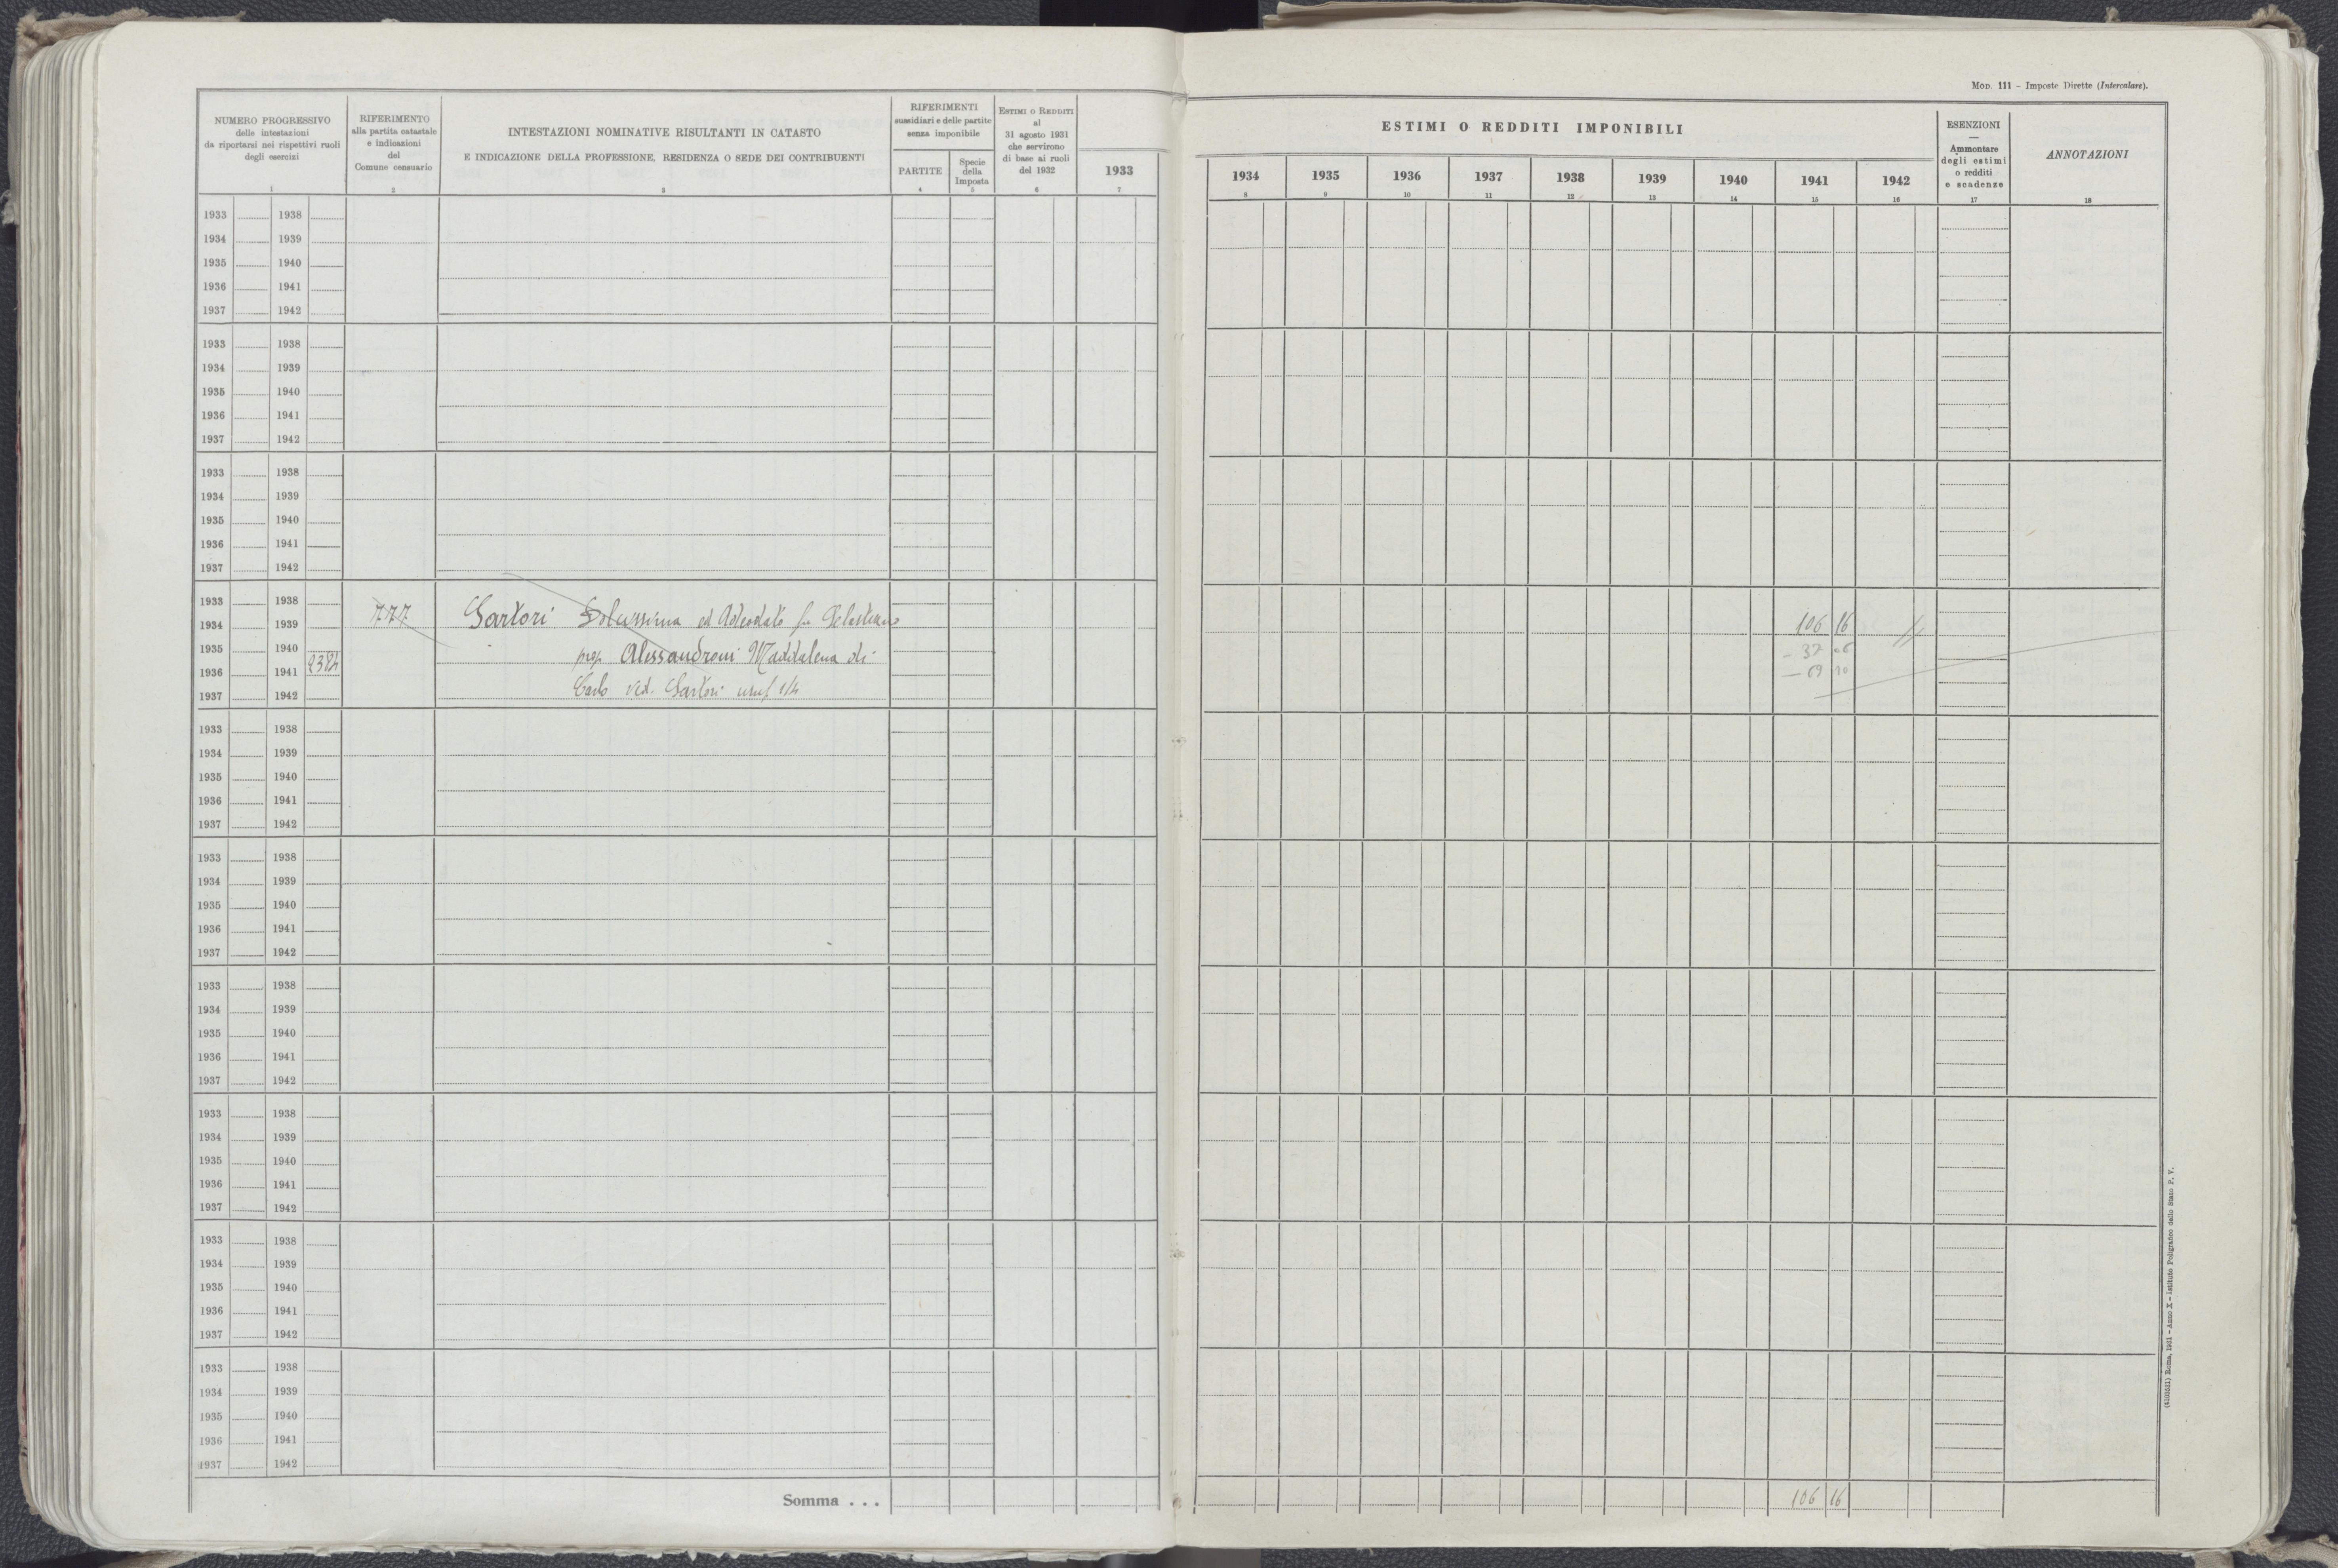 Mod. 111 – Imposte Dirette (Intercalare).
NUMERO PROGRESSIVO
delle intestazioni
da riportarsi nei rispettivi ruoli
degli esercizi
1
RIFERIMENTO
alla partita catastale
e indicazioni
del
Comune censuario
2
INTESTAZIONI NOMINATIVE RISULTANTI IN CATASTO
E INDICAZIONE DELLA PROFESSIONE, RESIDENZA O SEDE DEI CONTRIBUENTI
3
RIFERIMENTI
sussidiari e delle partite
senza imponibile
PARTITE
4
Specie
della
Imposta
5
Estimi o Redditi
al
31 agosto 1931
che servirono
di base ai ruoli
del 1932
6
1933
7
ESTIMI O REDDITI IMPONIBILI
1934 1935 1936 1937 1938 1939 1940 1941 1942
8 9 10 11 12 13 14 15 16
ESENZIONI
—
Ammontare
degli estimi
o redditi
e scadenze
17
ANNOTAZIONI
18
1933 1938
1934 1939
1935 1940
1936 1941
1937 1942
1933 1938
1934 1939
1935 1940
1936 1941
1937 1942
1933 1938
1934 1939
1935 1940
1936 1941
1937 1942
1933 1938
1934 1939 777 Sartori ed Adeodato fu 106 16
1935 1940 prop. Alessandroni Maddalena di
1936 1941 Carlo ved. Sartori usuf. 1/4
1937 1942
1933 1938
1934 1939
1935 1940
1936 1941
1937 1942
1933 1938
1934 1939
1935 1940
1936 1941
1937 1942
1933 1938
1934 1939
1935 1940
1936 1941
1937 1942
1933 1938
1934 1939
1935 1940
1936 1941
1937 1942
1933 1938
1934 1939
1935 1940
1936 1941
1937 1942
1933 1938
1934 1939
1935 1940
1936 1941
1937 1942
Somma . . . 106 16
Roma, 1931 – Anno X – Istituto Poligrafico dello Stato P. V.